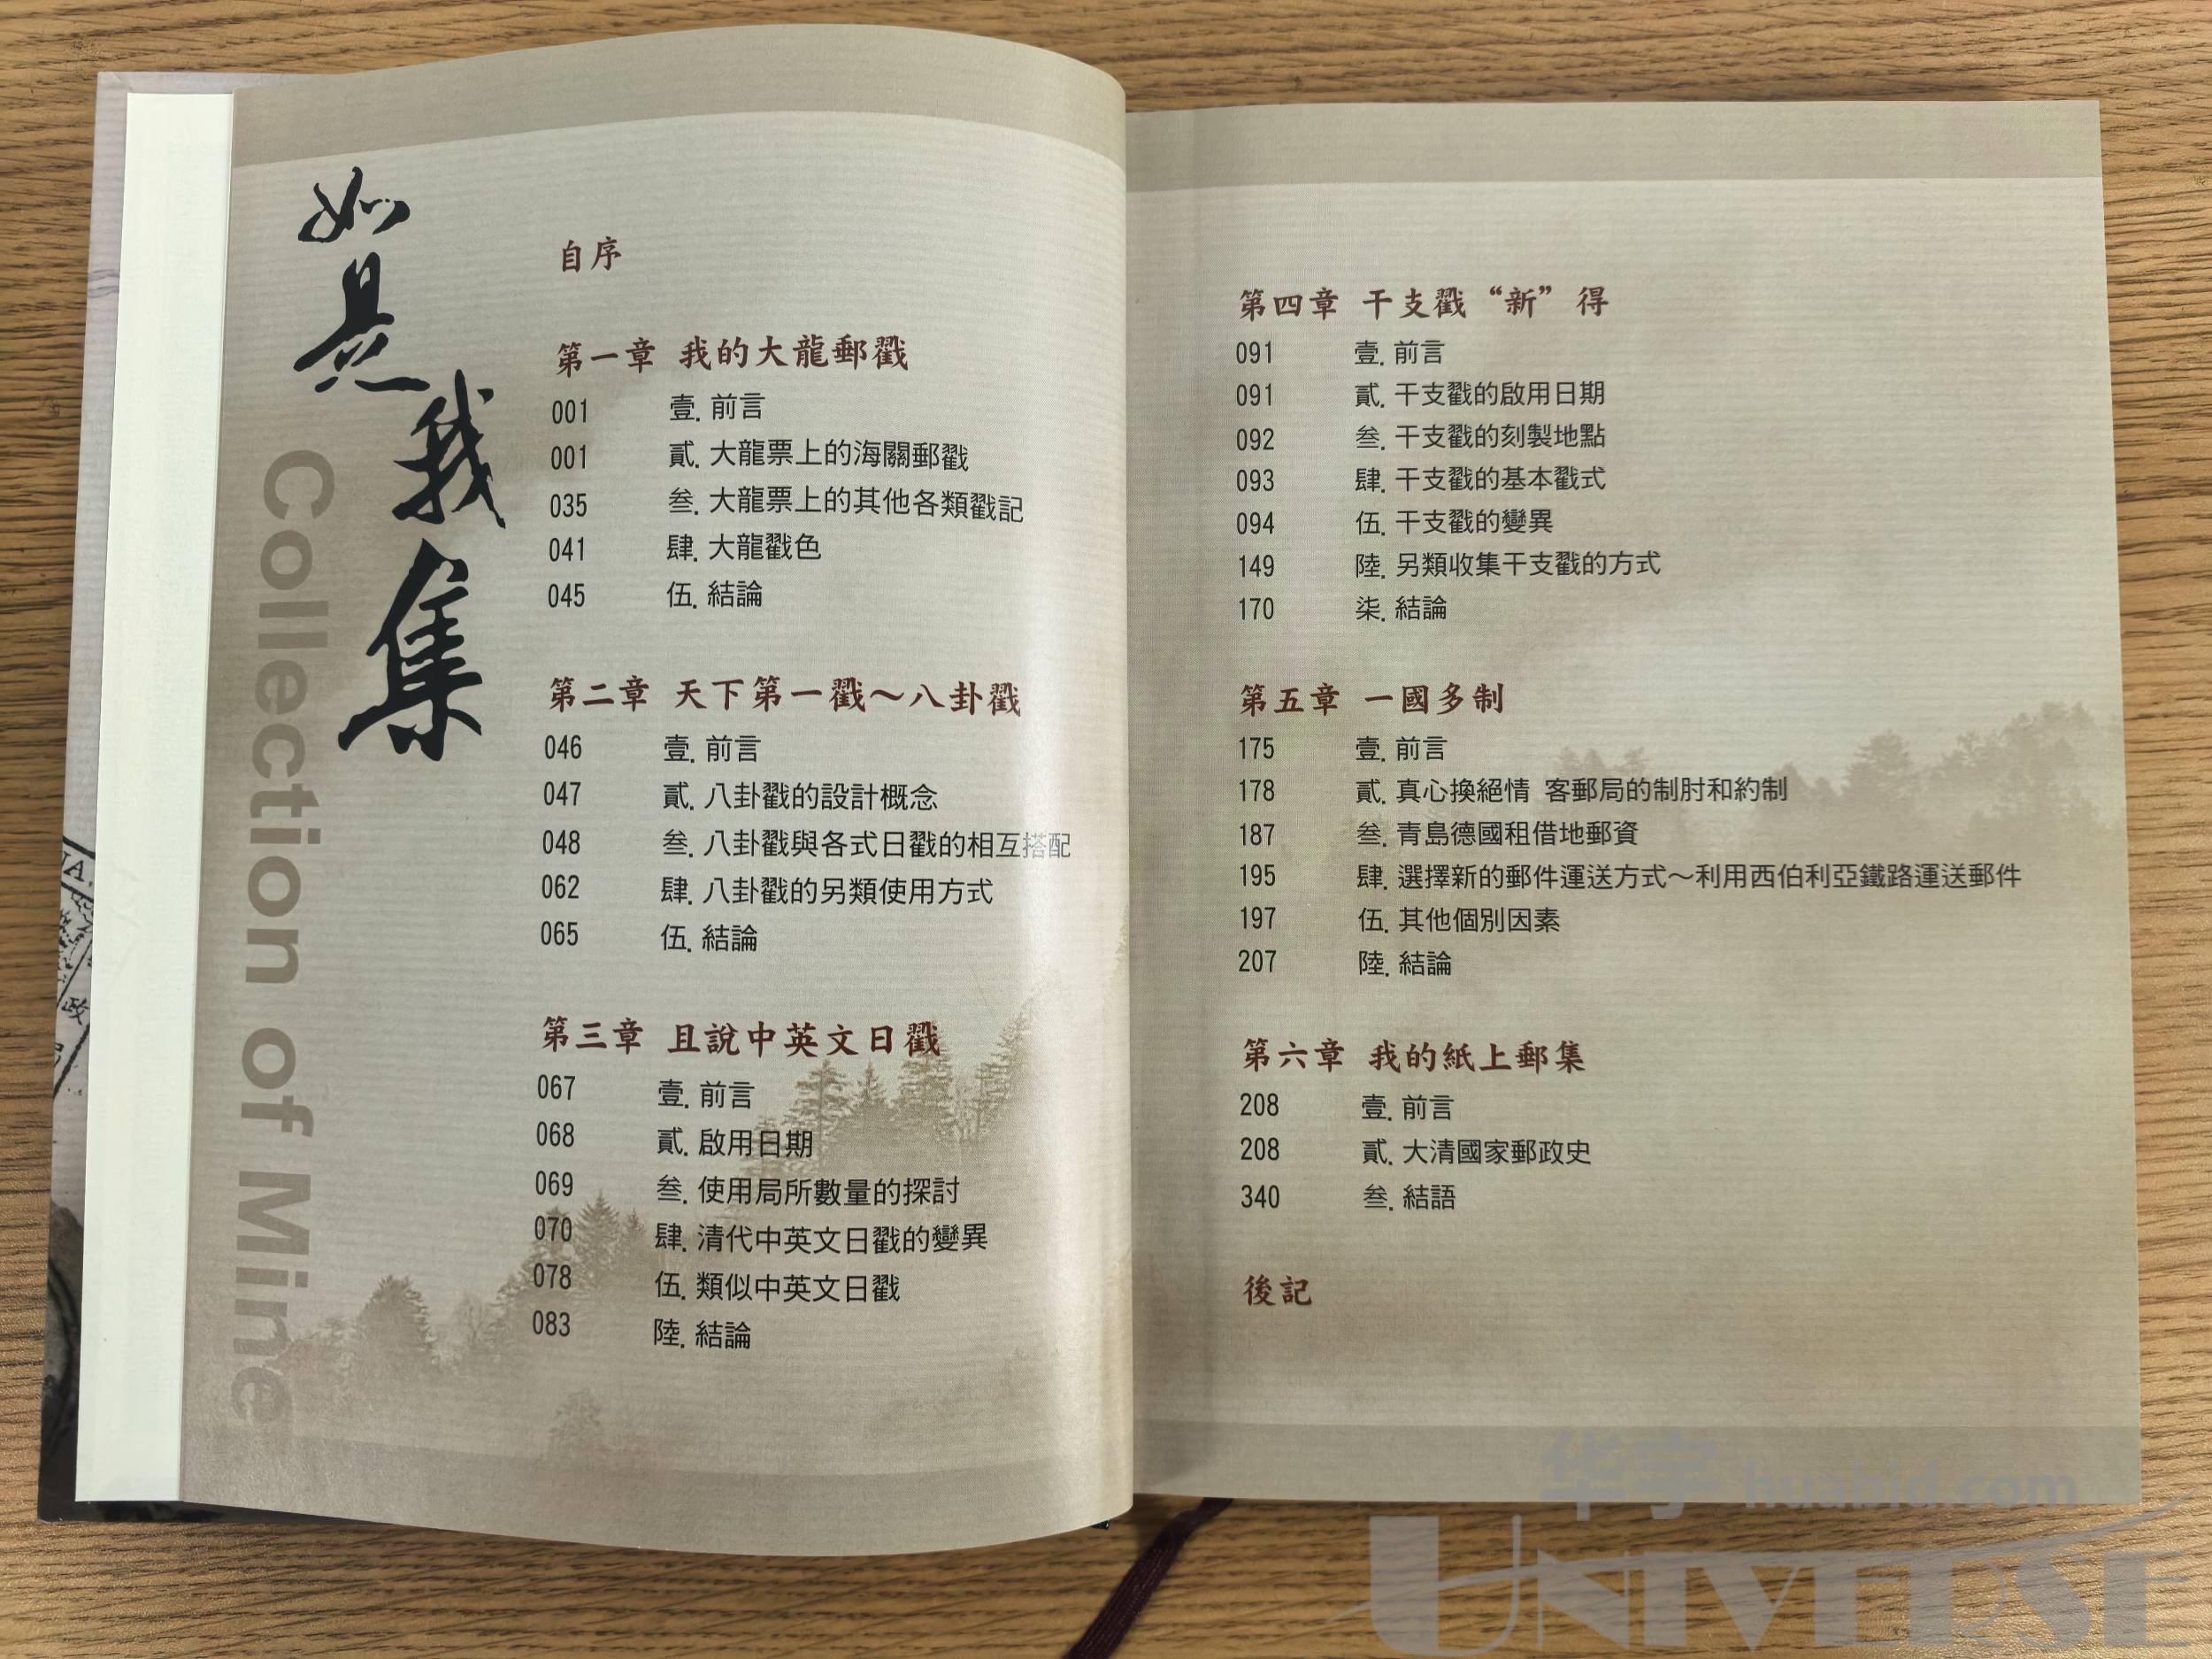 如是我集
Collection of Mine
自序
第一章 我的大龍郵戳
001 壹. 前言
001 貳. 大龍票上的海關郵戳
035 叁. 大龍票上的其他各類戳記
041 肆. 大龍戳色
045 伍. 結論
第二章 天下第一戳～八卦戳
046 壹. 前言
047 貳. 八卦戳的設計概念
048 叁. 八卦戳與各式日戳的相互搭配
062 肆. 八卦戳的另類使用方式
065 伍. 結論
第三章 且說中英文日戳
067 壹. 前言
068 貳. 啟用日期
069 叁. 使用局所數量的探討
070 肆. 清代中英文日戳的變異
078 伍. 類似中英文日戳
083 陸. 結論
第四章 干支戳“新”得
091 壹. 前言
091 貳. 干支戳的啟用日期
092 叁. 干支戳的刻製地點
093 肆. 干支戳的基本戳式
094 伍. 干支戳的變異
149 陸. 另類收集干支戳的方式
170 柒. 結論
第五章 一國多制
175 壹. 前言
178 貳. 真心換絕情 客郵局的制肘和約制
187 叁. 青島德國租借地郵資
195 肆. 選擇新的郵件運送方式～利用西伯利亞鐵路運送郵件
197 伍. 其他個別因素
207 陸. 結論
第六章 我的紙上郵集
208 壹. 前言
208 貳. 大清國家郵政史
340 叁. 結語
後記
华宇 huabid.com
UNIVERSE
政